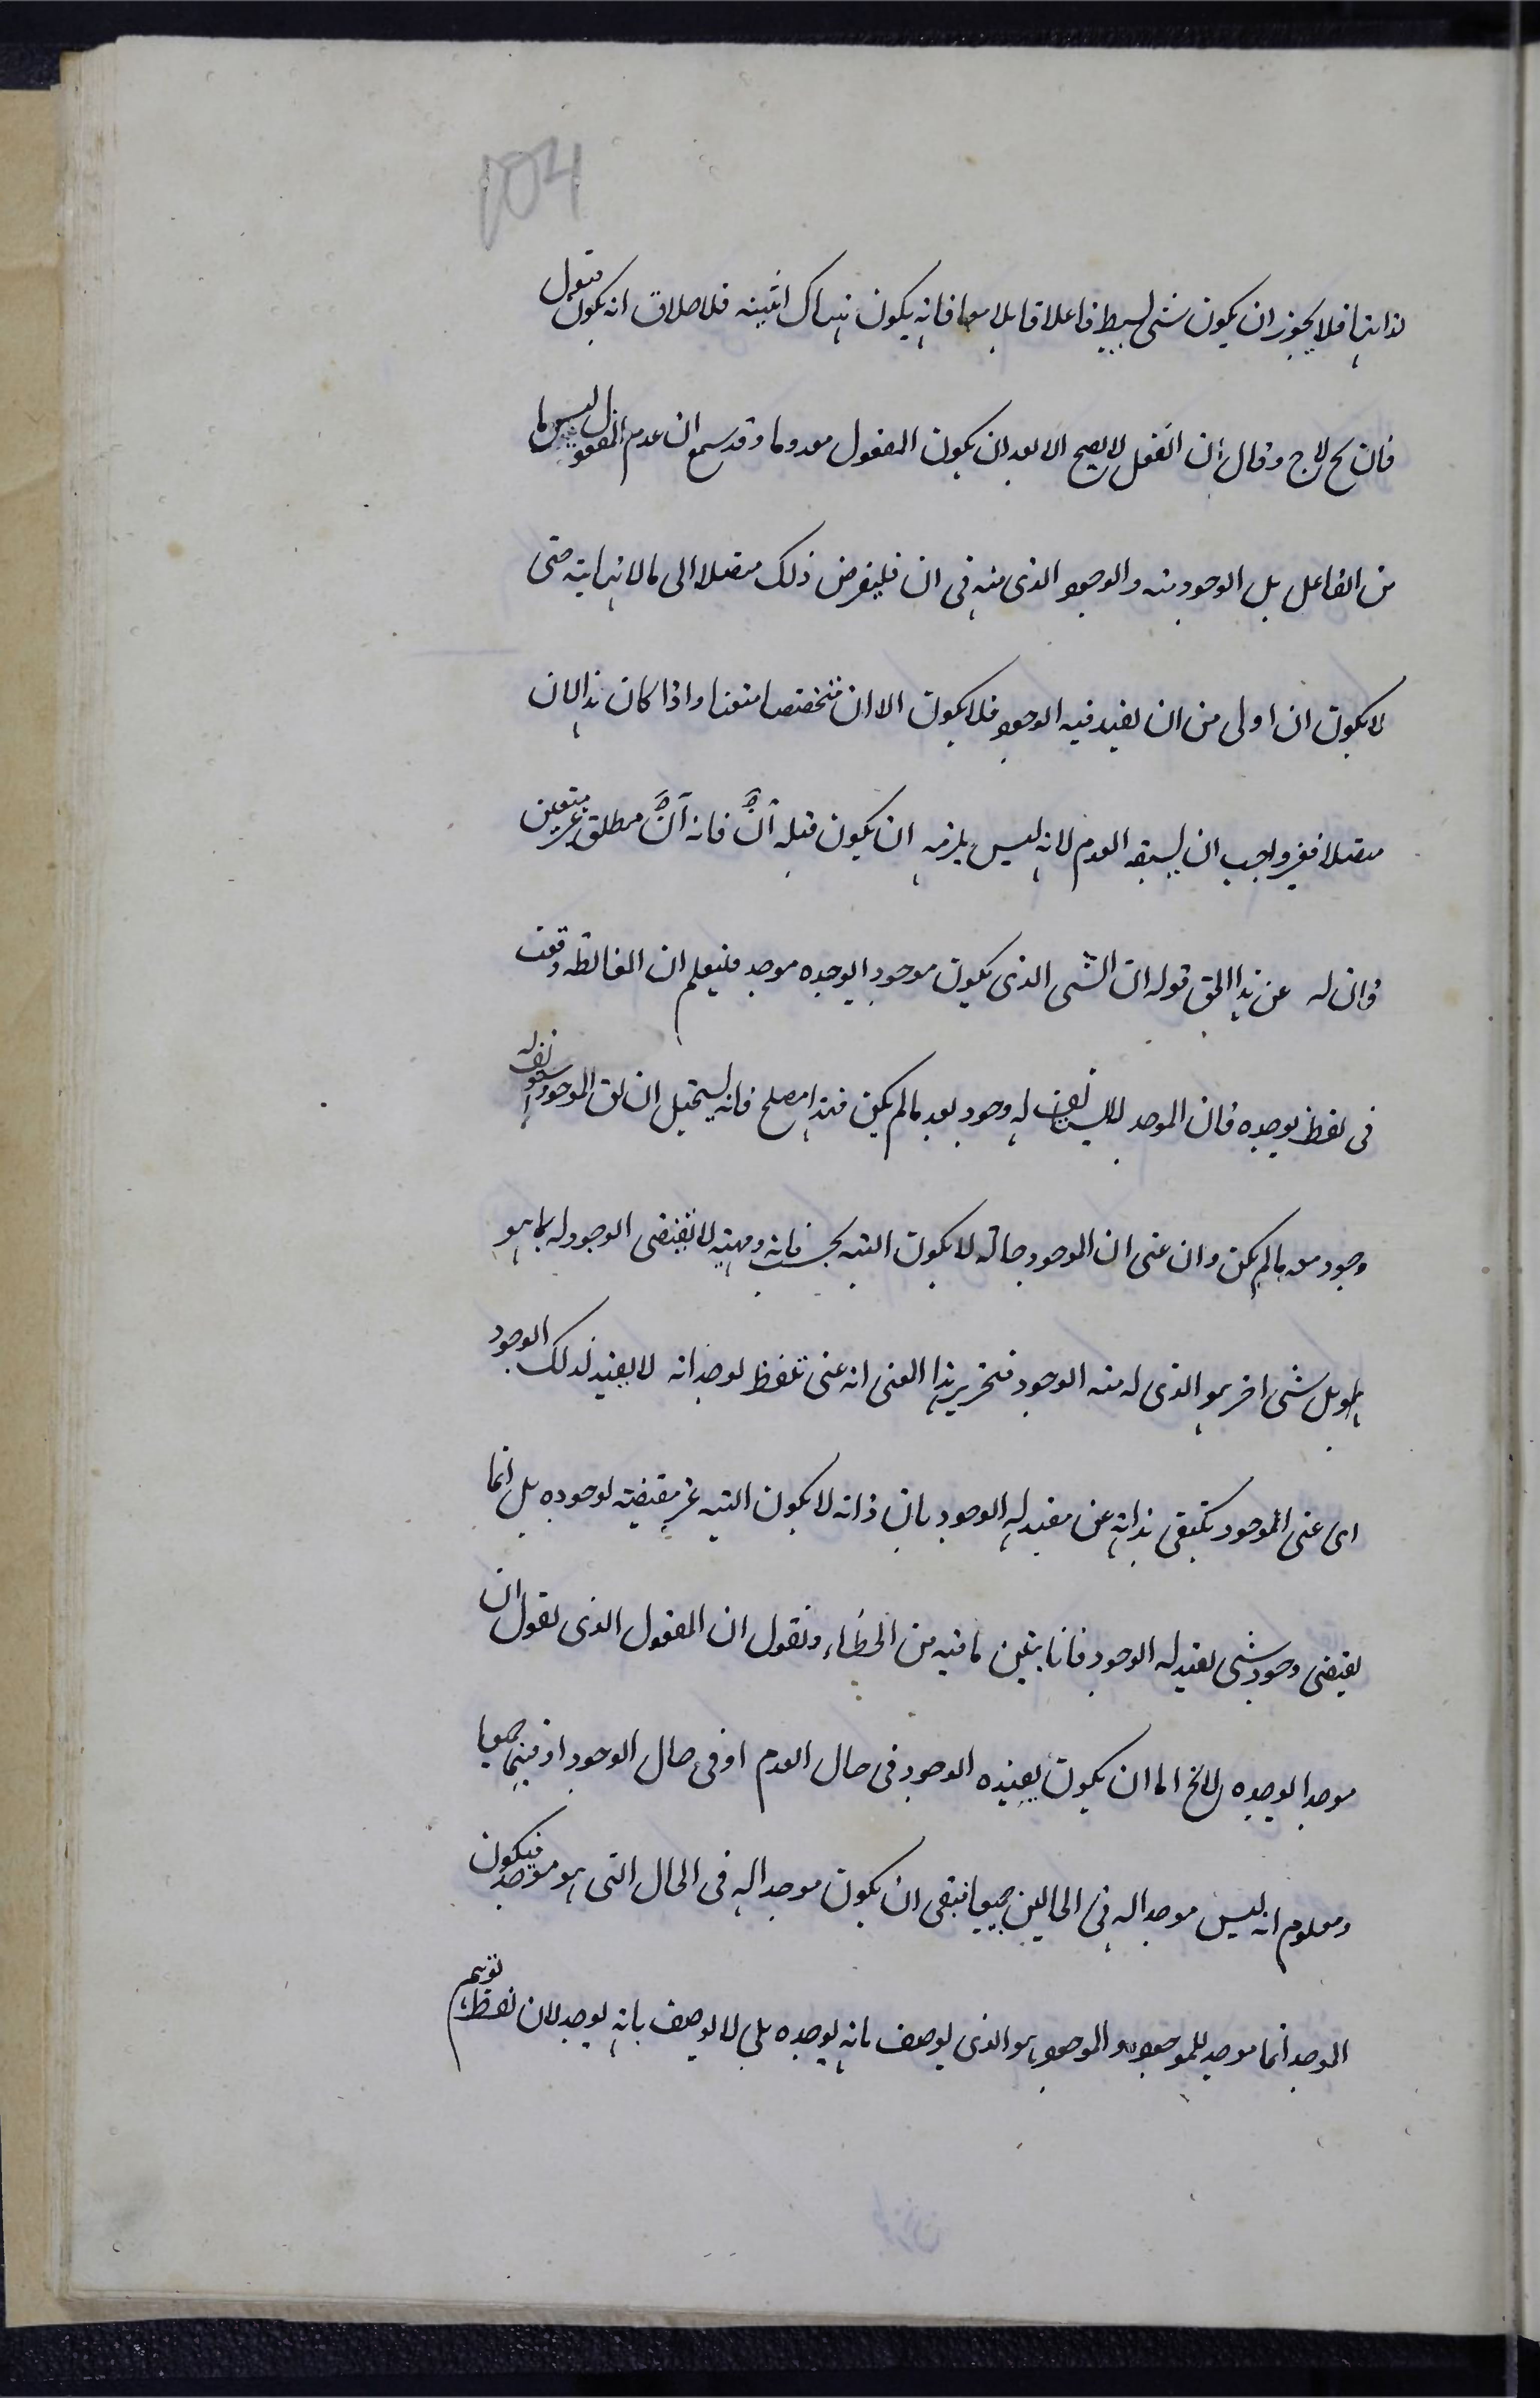 104
لذاتها فلا يجوز ان يكون شئ بسيط فاعلا قابلا معا فانه يكون هناك اثنينيه فلاصلاق انه يكون مقول
فان لح لاج وقال ان الفعل لا يصح الا بعد ان يكون المفعول معدوما وقد سمع ان عدم المفعول ليس ما
من الفاعل بل الوجود منه والوجود الذى منه فى ان فليفرض ذلك متصلا الى مالا نهايته حتى
لا يكون ان اولى من ان يفيد فيه الوجود فلا يكون الا ان متخصصا متعينا واذا كان هذا الان
متصلا فغير واجب ان يسبقه العدم لانه ليس يلزمه ان يكون قبله انّ فانه انّ مطلق غير متعين
فان له عن هذا الحق قوله ان الشى الذى يكون موجودا يوجده موجد فليعلم ان المغالطه وقعت
فى لفظ يوجده فان الموجد له وجود بعد مالم يكن فهذا مصلح فانه يستحيل ان الموجود
وجود بعد مالم يكن وان عنى ان الموجود حاله لا يكون البته بحسب ذاته ومهيته لا تقتضى الوجود له بما هو
هو بل شى اخر هو الذى له منه الوجود فتحرير هذا المعنى انه عنى بلفظ يوجد انه لا يفيد لذلك الوجود
اى عنى الموجود يكتفى بذاته عن مفيد له الوجود بان ذاته لا يكون البته غير مقتضيته لوجوده بل انما
يقتضى وجود شى يفيد له الوجود فانا نبين ما فيه من الخطاء ونقول ان المفعول الذى نقول ان
موجدا يوجده لا يخ اما ان يكون يفيده الوجود فى حال العدم او فى حال الوجود او فيهما جميعا
ومعلوم انه ليس موجدا له فى الحالين جميعا فبقى ان يكون موجدا له فى الحال التى هو موجود فيكون
الموجد انما موجد للموجود والموجود هو الذى يوصف بانه يوجده بلى لا يوصف بانه يوجد لان لفظه توهم